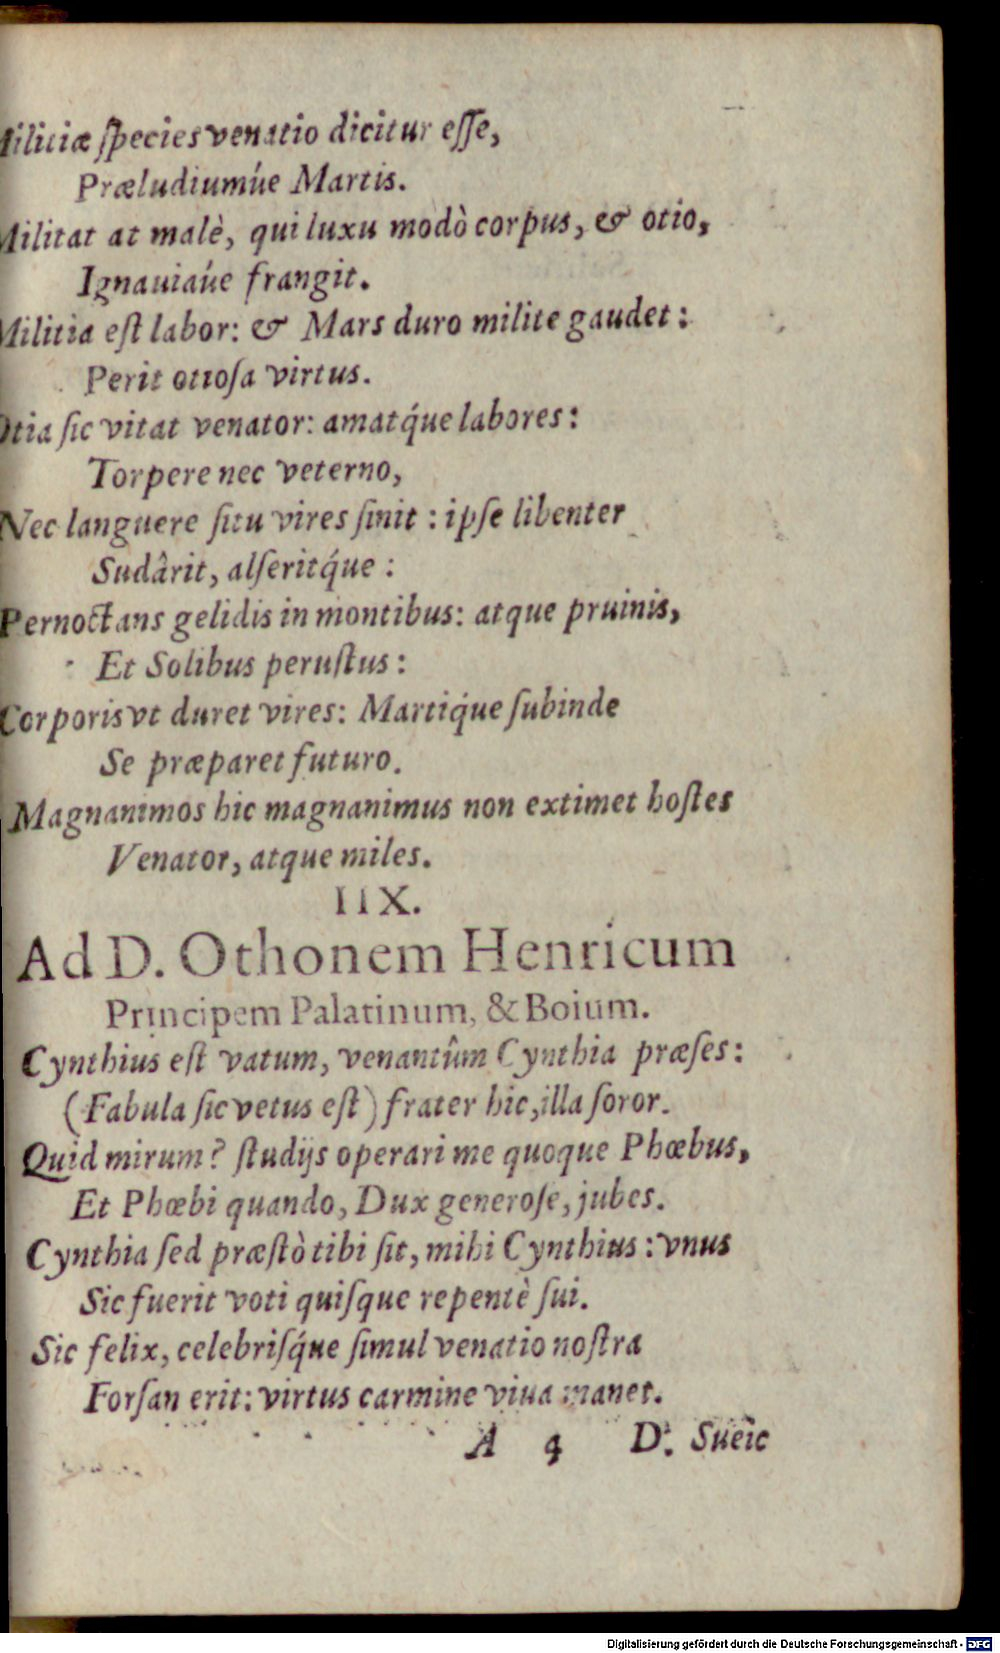 Miliciæ ſpecies venatio dicitur eſſe,
Præludiumúe Martis.
Militat at malè, qui luxu modò corpus, & otio,
Ignauiaúe frangit.
Militia eſt labor: & Mars duro milite gaudet:
Perit otioſa virtus.
Otia ſic vitat venator: amatq́ue labores:
Torpere nec veterno,
Nec languere ſitu vires ſinit: ipſe libenter
Sudârit, alſeritq́ue:
Pernoctans gelidis in montibus: atque pruinis,
Et Solibus peruſtus:
Corporis vt duret vires: Martiq́ue ſubinde
Se præparet futuro.
Magnanimos hic magnanimus non extimet hoſtes
Venator, atque miles.
IIX.
Ad D. Othonem Henricum
Principem Palatinum, & Boium.
Cynthius eſt vatum, venantûm Cynthia præſes:
(Fabula ſic vetus eſt) frater hic, illa ſoror.
Quid mirum? ſtudijs operari me quoque Phœbus,
Et Phœbi quando, Dux generoſe, jubes.
Cynthia ſed præſtò tibi ſit, mihi Cynthius: vnus
Sic fuerit voti quiſque repentè ſui.
Sic felix, celebriſq́ue ſimul venatio noſtra
Forſan erit: virtus carmine viua manet.
A 4 D. Sueic
Digitalisierung gefördert durch die Deutsche Forschungsgemeinschaft - DFG